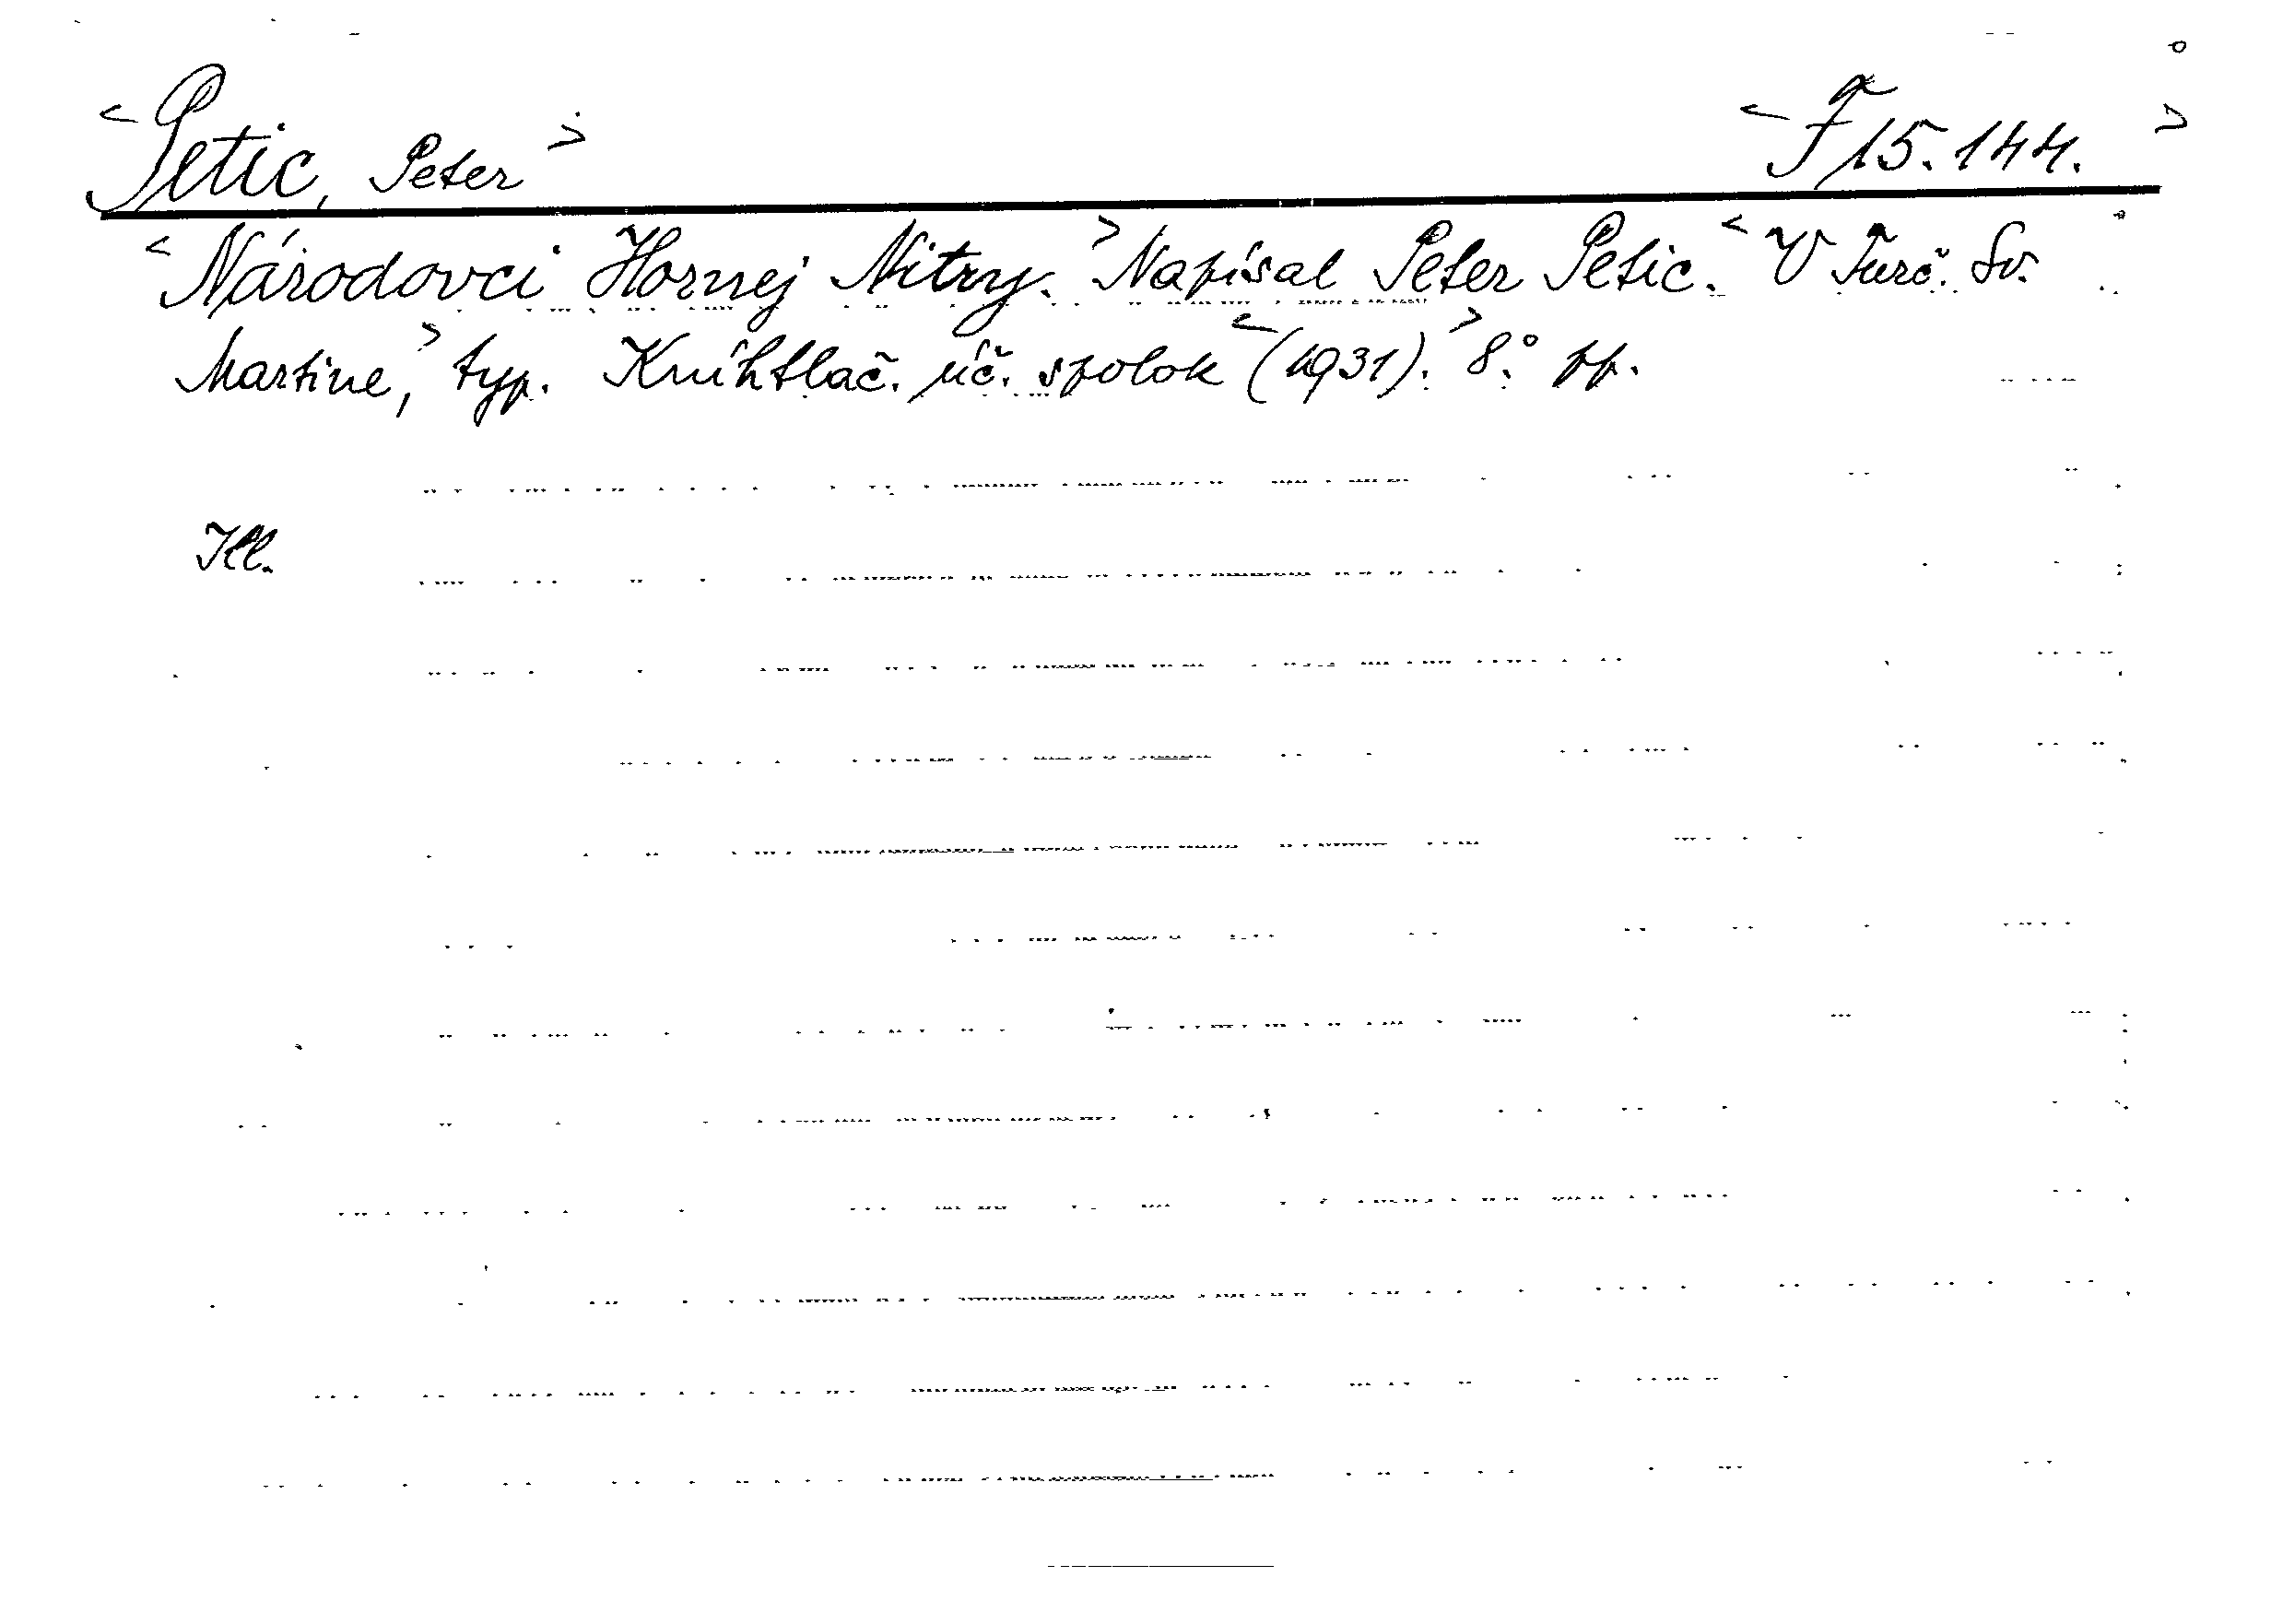 <Petic, Peter> <F 15.144.>
<Národovci Hornej Nitry.> Napísal Peter Petic. <V Turč. Sv.
Martine,> typ. Kníhtlač. úč. spolok <(1931).> 8.° pp.
Ill.